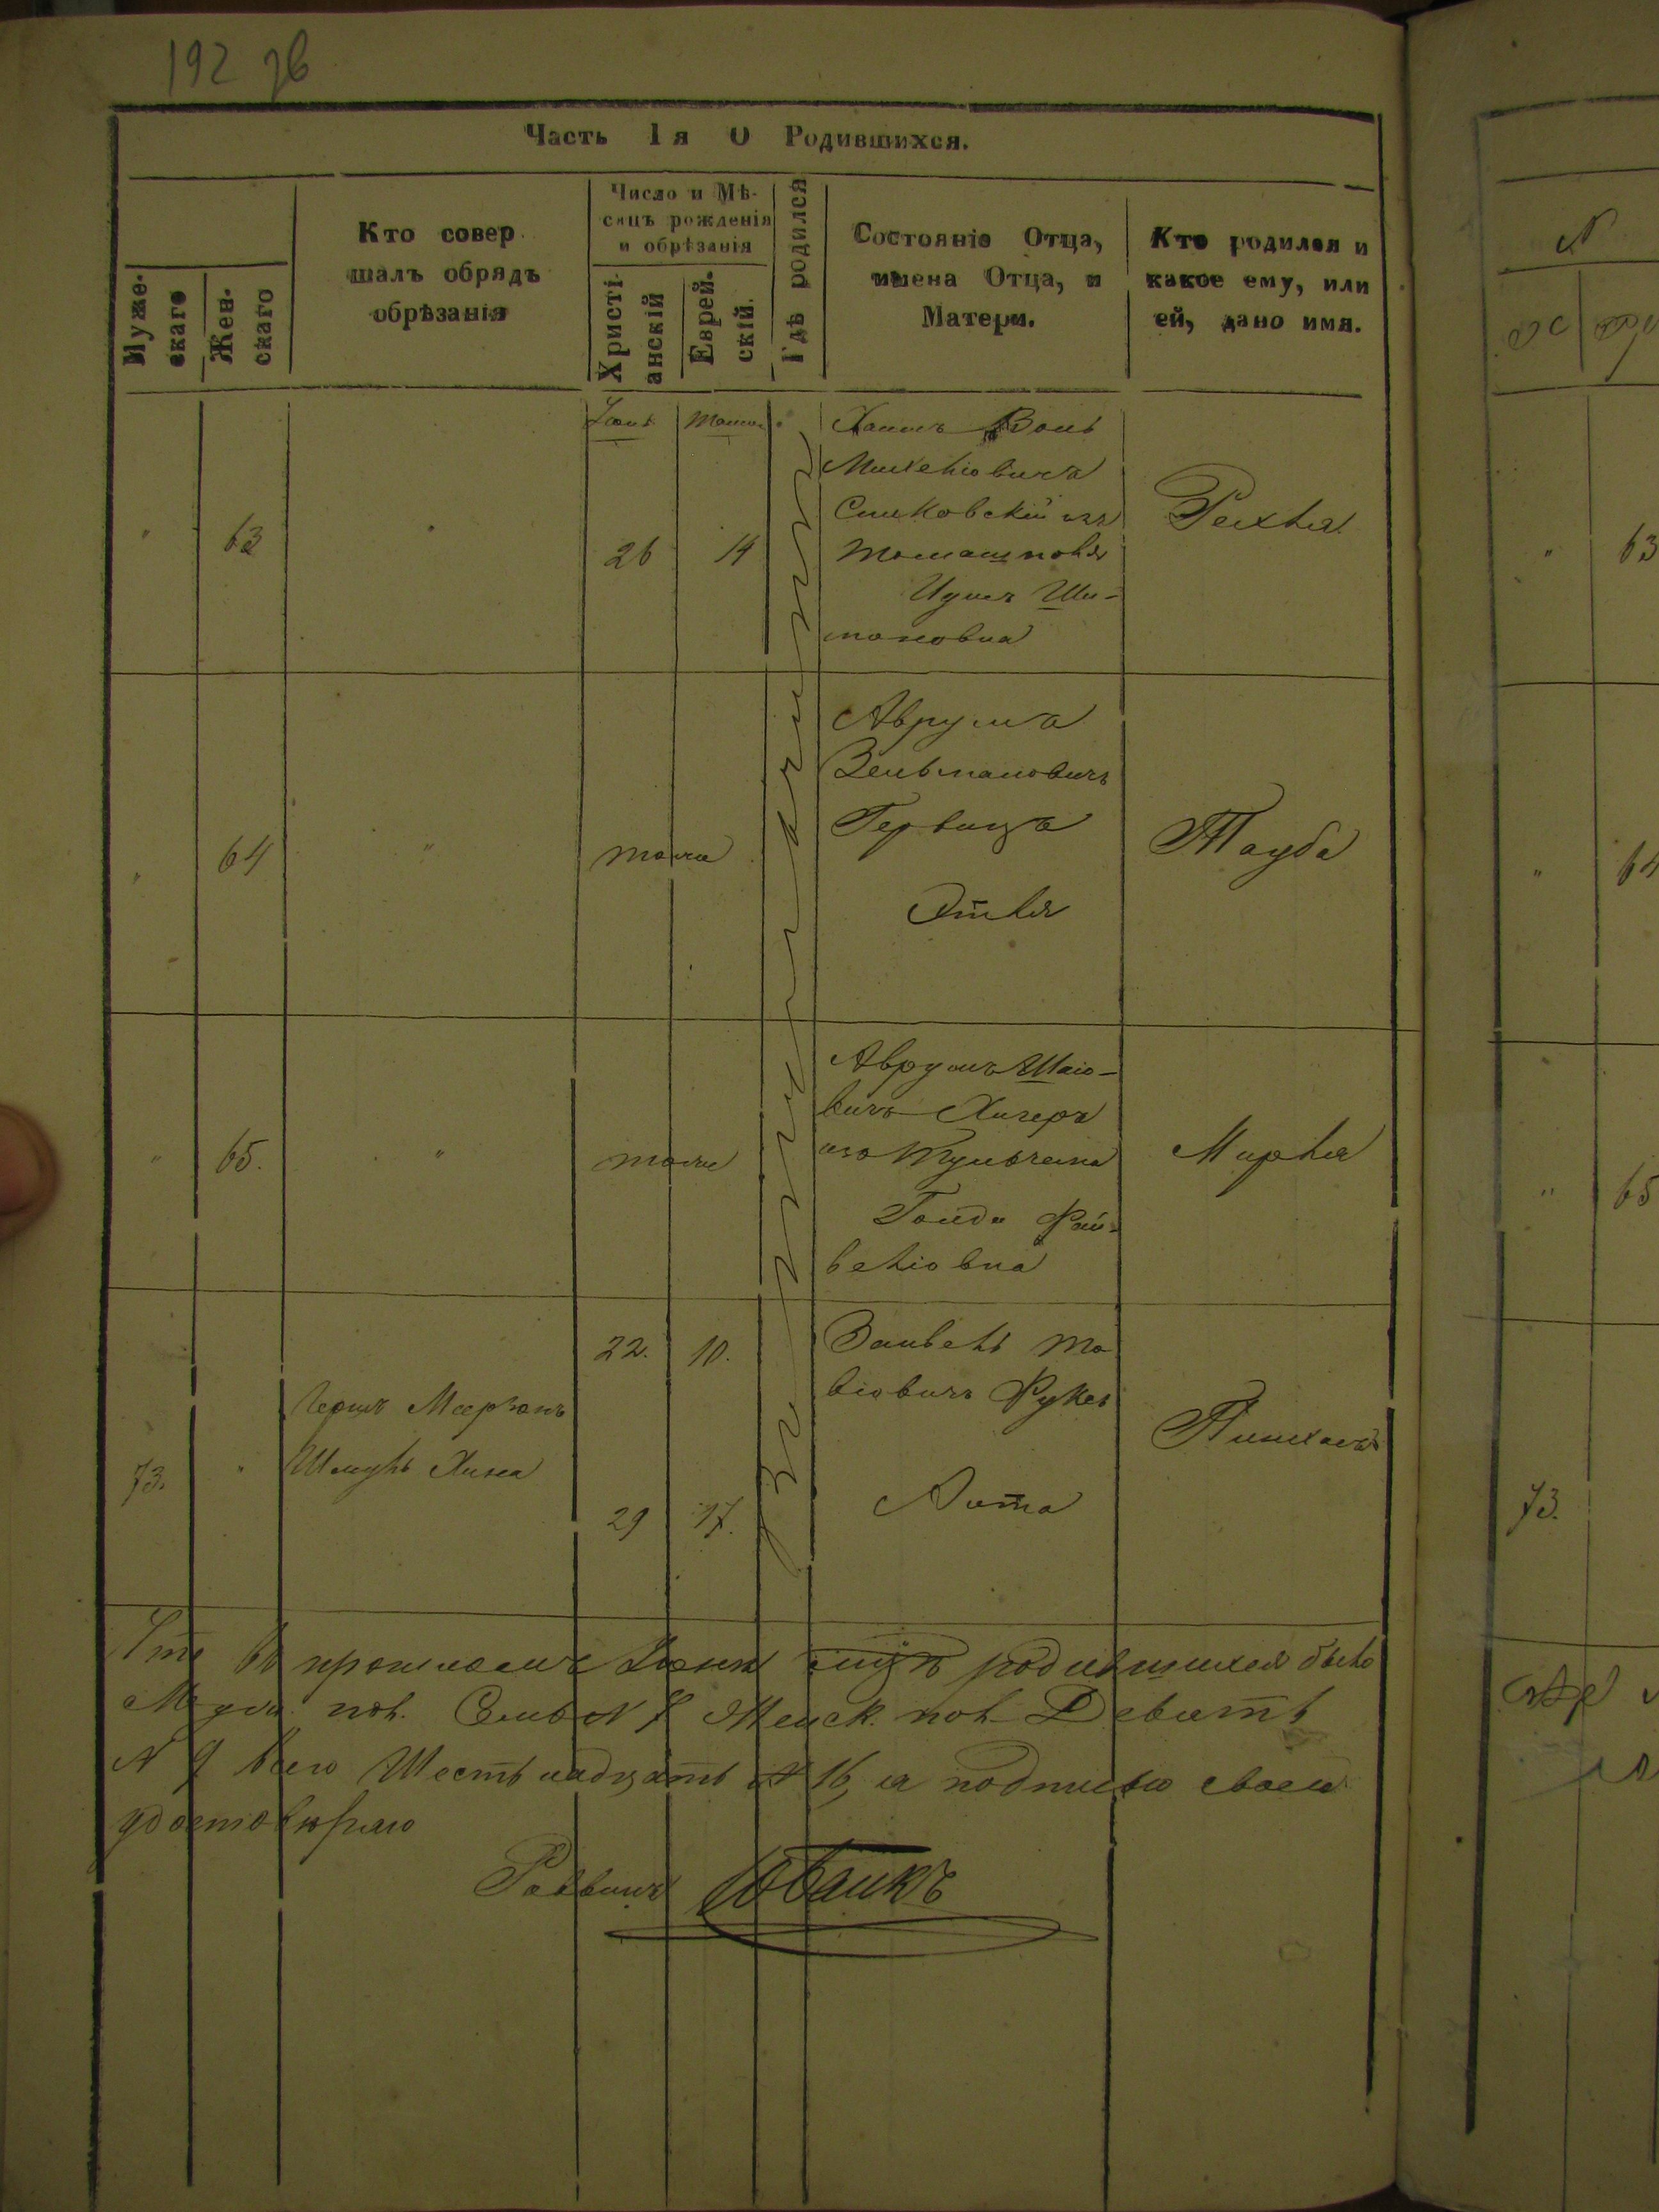 192 зв
Часть 1я О Родившихся.
Муже-
скаго
Жен-
скаго
Кто совер
шалъ обрядъ
обрѣзанія
Число и Мѣ-
сяцъ рожденія
и обрѣзанія
Христі-
анскій
Еврей-
скій.
Гдѣ родился
Состояніе Отца,
имена Отца, и
Матери.
Кто родился и
какое ему, или
ей, дано имя.
63
26
14
Хаимъ Воль
Михеліовичъ
изъ
Томашполя
Ши-
мановна
Рейхля
64
"
тоже
Аврумъ
Зельмановичъ
Гервицъ
Этля
Тауба
65.
"
тоже
Аврумъ Шаіо-
вичъ Хигеръ
изъ Тульчина
Голда Фай-
веліовна
Мирля
73.
"
Шмуль
22.
10.
29
17.
Занвель То
віовичъ
Пинхасъ
Что въ прошломъ мцѣ родившихся было
Муж. пол. Семь N 7 Женск. пол. Девять
N 9 всего Шестьнадцать N 16, я подписью своею
удостовѣряю
Раввинъ
N
63
64
65
73.